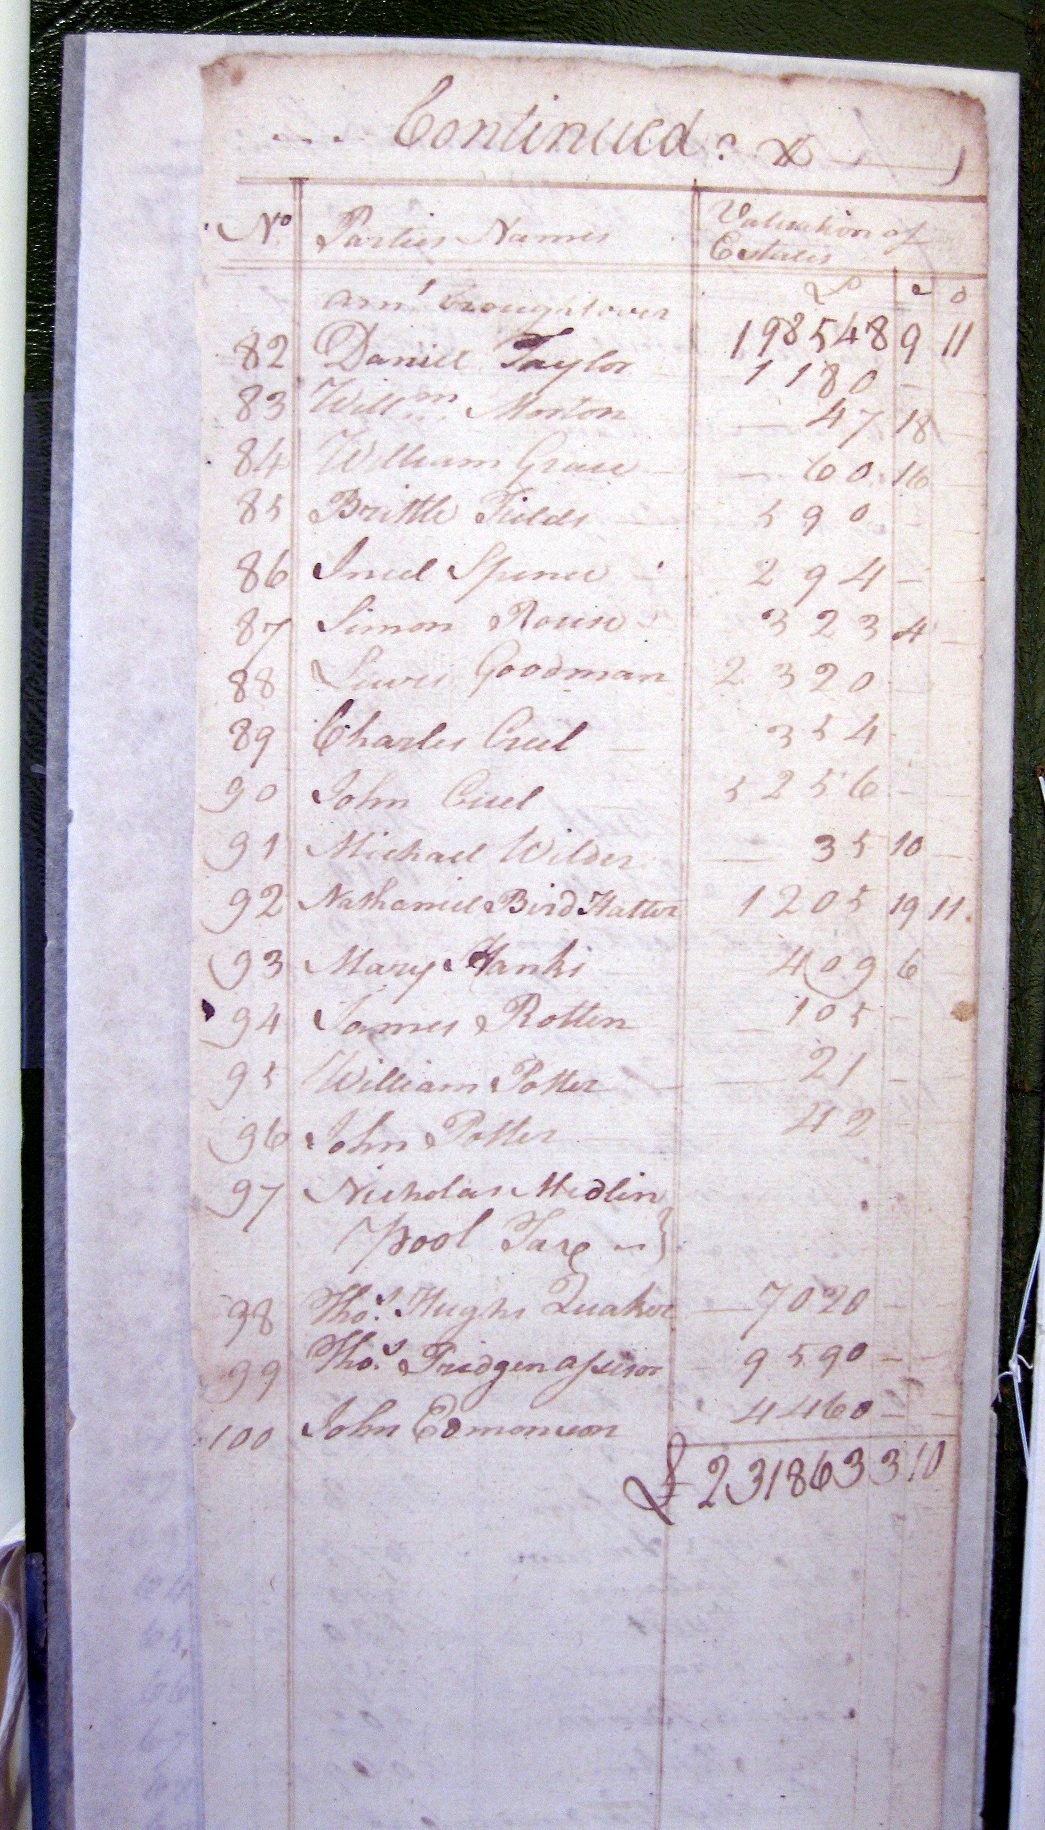 Continued
No Parties Names Valuation of Estates
£ s d
Amt Brought over 198548 9 11
82 Daniel Taylor 1180 –
83 Willm Morton — 47 18 –
84 William Grace — 60 16
85 Brittle Fields — 590 –
86 Snied Spence 294 –
87 Simon Rouse 323 4 –
88 Lewis Goodman 2320
89 Charles Creel — 354
90 John Creel 5256 –
91 Michael Wilder — 35 10 –
92 Nathaniel Bird Hatter 1205 19 11
93 Mary Hanks 409 6
94 James Rotten — 105 –
95 William Potter — 21 –
96 John Potter 42
97 Nicholas Medlin
pool Tax }
98 Thos. Hughs Quaker — 7020 –
99 Thos. Fridgen assessor – 9590 –
100 John Edmonson 4460 – –
£ 231863 3 10